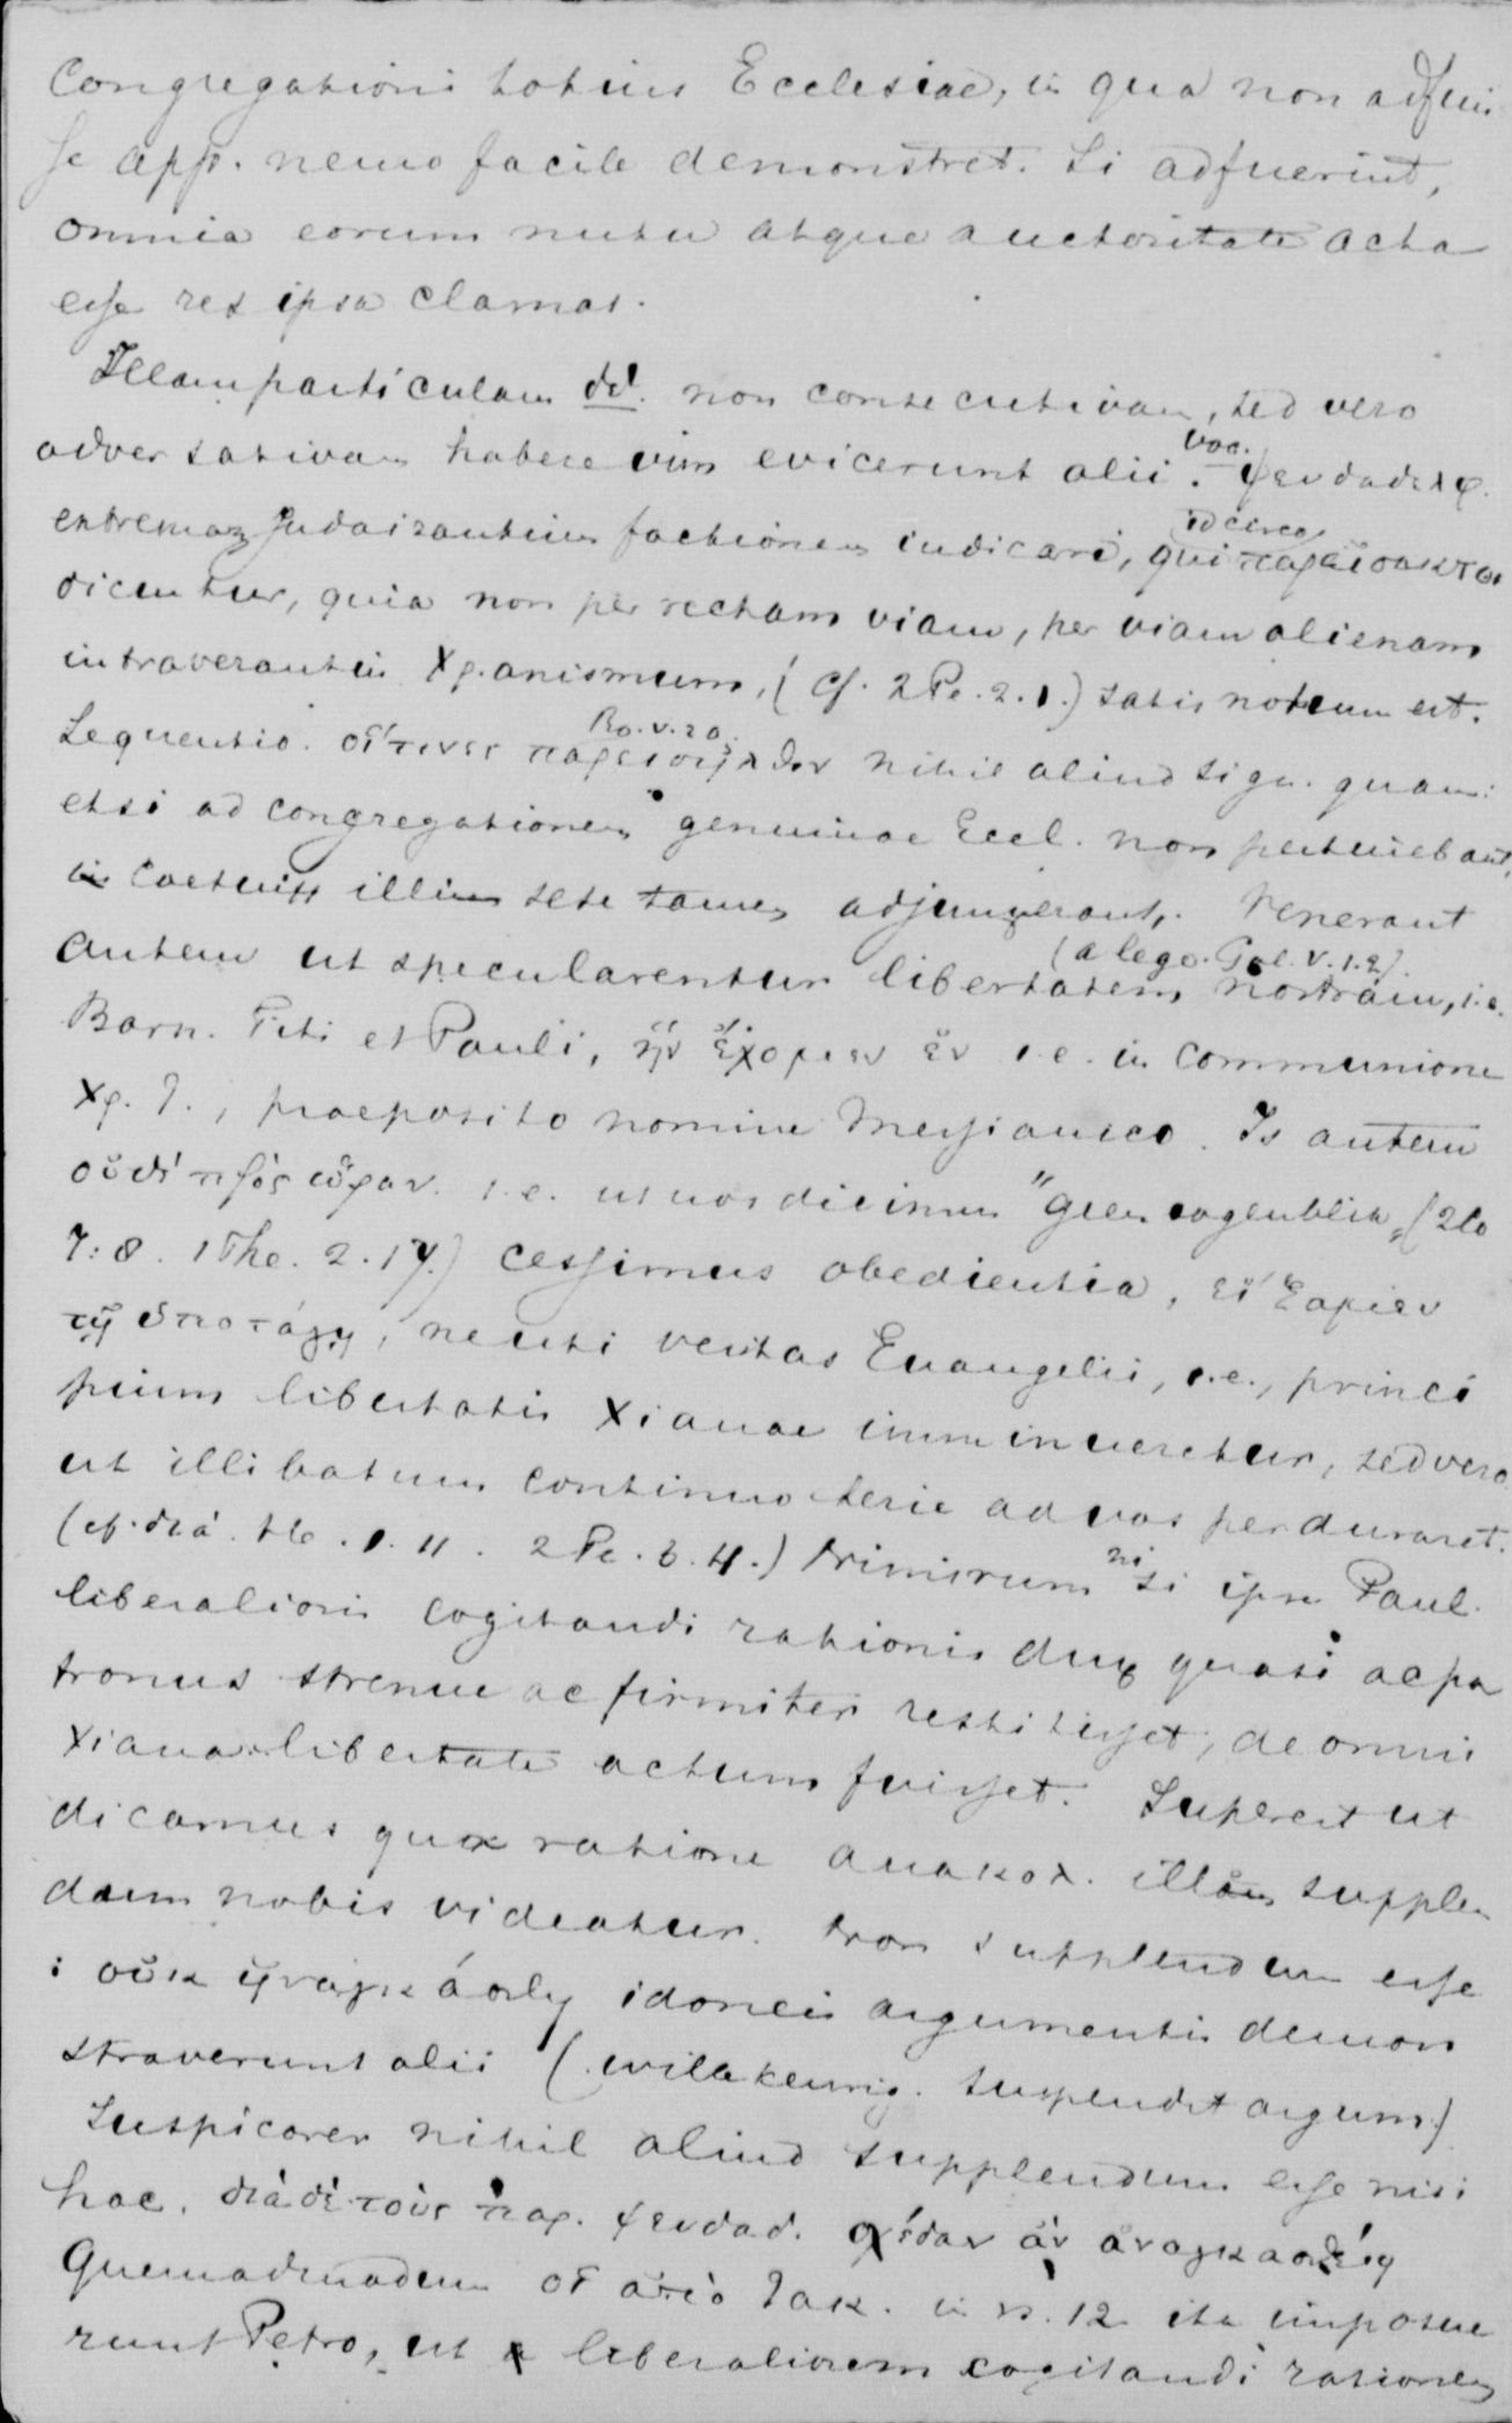 Congregationi totius Ecclesiae, in qua non adfuis
se app. nemo facile demonstret. Si adfuerint,
omnia eorum nutu atque auctoritate acta
esse res ipsa clamat.
Illam particulam δέ. non consecutivam, sed vero
adversativam habere vim evicerunt alii. voc. ψευδαδελφ.
extremam Judaizantium factionem indicari, qui idcirco παρεισακτοι
dicuntur, quia non per rectam viam, per viam alienam
intraverant in Χρ.anismum, (cf. 2 Pe. 2.1.) satis notum est.
Sequentia. οἵτινες παρεισῆλθον Ro. V. 20. nihil aliud sign. quam:
etsi ad congregationem genuinae Eccl. non pertinebant,
coetui illius sese tamen adjunxerant. Venerant
autem ut specularentur libertatem (a lege. Gal. V. 1.2). nostram, i.e.
Barn. Titi et Pauli, ἥν ἔχομεν ἐν i.e. in communione
Χρ. J., praeposito nomine Messianico. Is autem
οὐδέ πρὸς ὥραν. i.e. ut nos dicimus "geen oogenblik" (2 Co
7:8. 1 The. 2.17.) cessimus obedientia, εἴξαμεν
τῇ ὑποταγῇ, ne uti veritas Euangelii, i.e., princi
pium libertatis Xianae imminueretur, sed vero
ut illibatum continuo serie ad vos perduraret.
(cf. διά. He. 1. 11. 2 Pe. 3. 4.) Nimirum ni si ipse Paul.
liberalioris cogitandi rationis dux quasi ac pa
tronus strenue ac firmiter restitisset, de omni
Xiana libertate actum fuisset. Superest ut
dicamus qua ratione ανακολ. illam supplen
dam nobis videatur. Non supplendum esse
: οὐκ ἠναγκάσθη idoneis argumentis demon
straverunt alii (willekeurig. suspendit argum.)
Suspicarer nihil aliud supplendum esse nisi
hoc. διὰ δὲ τοὺς παρ. ψευδαδ. ἀναγκασθείη
Quemadmodum οἵ ἀπὸ Ἰακ. in v. 12 ita imposue
runt Petro, ut liberaliorem cogitandi rationem